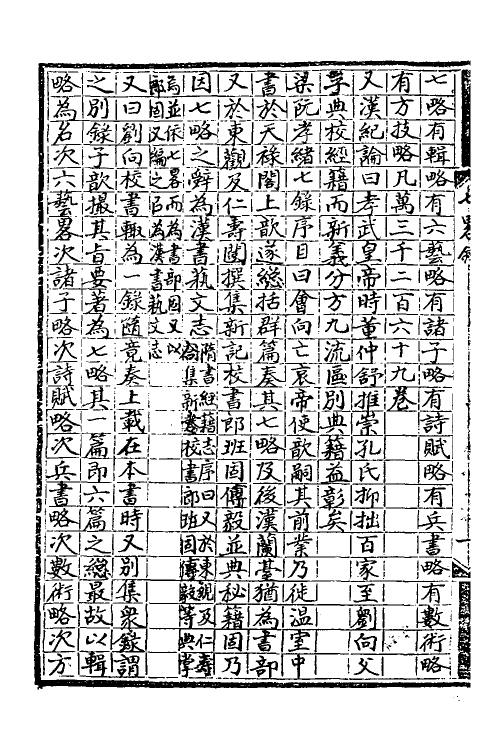 七略有輯略有六藝略有諸子略有詩賦略有兵書略有數術略
有方技略凡萬三千二百六十九卷
又漢紀論曰孝武皇帝時董仲舒推崇孔氏抑拙百家至劉向父
子典校經籍而新義分方九流區別典籍益彰矣
梁阮孝緒七錄序目曰會向亡哀帝使歆嗣其前業乃徙温室中
書於天祿閣上歆遂總括群篇奏其七略及後漢蘭臺猶為書部
又於東觀及仁壽闥撰集新記校書郎班固傅毅並典秘籍固乃
因七略之辭為漢書藝文志隋書經籍志序曰又於東觀及仁壽
閣集新書校書郎班固傅毅等典掌
焉並依七畧而為書部固又以
郎固又編之以為漢書藝文志
又曰劉向校書輒為一錄隨竟奏上載在本書時又別集衆錄謂
之別錄子歆撮其旨要著為七略其一篇即六篇之總最故以輯
略為名次六藝畧次諸子略次詩賦略次兵書略次數術略次方
七畧